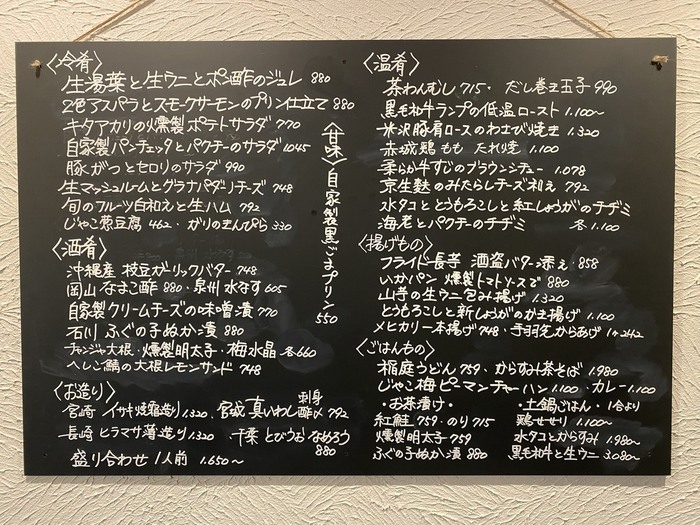 〈冷肴〉
生湯葉と生ウニとポン酢のジュレ 880
2色アスパラとスモークサーモンのプリン仕立て 880
キタアカリの燻製ポテトサラダ 770
自家製パンチェッタとパクチーのサラダ 1045
豚がつとセロリのサラダ 990
生マッシュルームとグラナパダーノチーズ 748
旬のフルーツ白和えと生ハム 792
じゃこ葱豆腐 462・ガリのきんぴら 330
〈酒肴〉
沖縄産 枝豆ガーリックバター 748
岡山 なまこ酢 880・泉州 水なす 605
自家製クリームチーズの味噌漬 770
石川 ふぐの子ぬか漬 880
チャンジャ大根・燻製明太子・梅水晶 各660
へしこ鯖の大根レモンサンド 748
〈お造り〉
宮崎 イサキ焼霜造り 1.320 宮城 真いわし酢〆 刺身 792
長崎 ヒラマサ薄造り 1.320 千葉 とびうおなめろう 880
盛り合わせ 1人前 1.650〜
〈甘味〉自家製黒ごまプリン 550
〈温肴〉
茶わんむし 715・だし巻き玉子 990
黒毛和牛ランプの低温ロースト 1.100〜
米沢豚肩ロースのわさび焼き 1.320
赤城鶏もも たれ焼 1.100
柔らか牛すじのブラウンシチュー 1.078
京生麩のみたらしチーズ和え 792
水タコととうもろこしと紅しょうがのチヂミ
海老とパクチーのチヂミ 各1.100
〈揚げもの〉
フライド長芋 酒盗バター添え 858
いかパン 燻製トマトソースで 880
山芋の生ウニ包み揚げ 1.320
とうもろこしと新しょうがのかき揚げ 1.100
メヒカリ一本揚げ 748・手羽先からあげ 1ヶ242
〈ごはんもの〉
稲庭うどん 759・からすみ茶そば 1.980
じゃこ梅ピーマンチャーハン 1.100・カレー 1.100
・お茶漬け・
紅鮭 759・のり 715
燻製明太子 759
ふぐの子ぬか漬 880
・土鍋ごはん・1合より
鶏せせり 1.100〜
水タコとからすみ 1.980〜
黒毛和牛と生ウニ 3.080〜